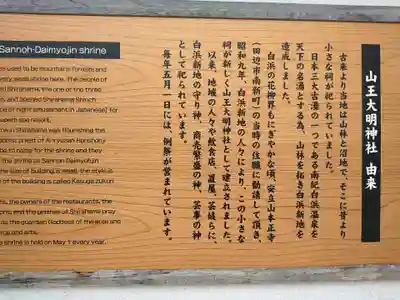 山王大明神社 由来
古来より当地は山林と沼地で、そこに昔より
小さな祠が祀られていました。
日本三大古湯の一つである南紀白浜温泉を
天下の名湯とする為、山林を拓き白浜新地を
造成しました。
白浜の花柳界もにぎやかな頃、安立山本正寺
(田辺市南新町)の当時の住職に勧請して頂き、
昭和九年、白浜新地の人々により、この小さな
祠が新しく山王大明神社として建立されました。
以来、地域の人々や飲食店、置屋、芸妓らに、
白浜新地の守り神、商売繁盛の神、芸事の神
として祀られています。
毎年五月一日には、例祭が営まれています。
Sannoh-Daimyojin shrine
used to be mountainous forests and
very small shrine here. The people of
Shirahama, the one of the three
and opened Shirahama Shinchi
of amusement in Japanese) for
superb spa resort.
in Shirahama was flourishing the
priest of Anryuzan Honshoji
to name for the shrine and they
the shrine as Sannoh Daimyojin
size of building is small, the style is
of the building is called Kasuga zukuri
the owners of the restaurants, the
and the geishas of Shirahama pray
as the guardian Goddess of the area and
arts and
shrine is held on May 1 every year.